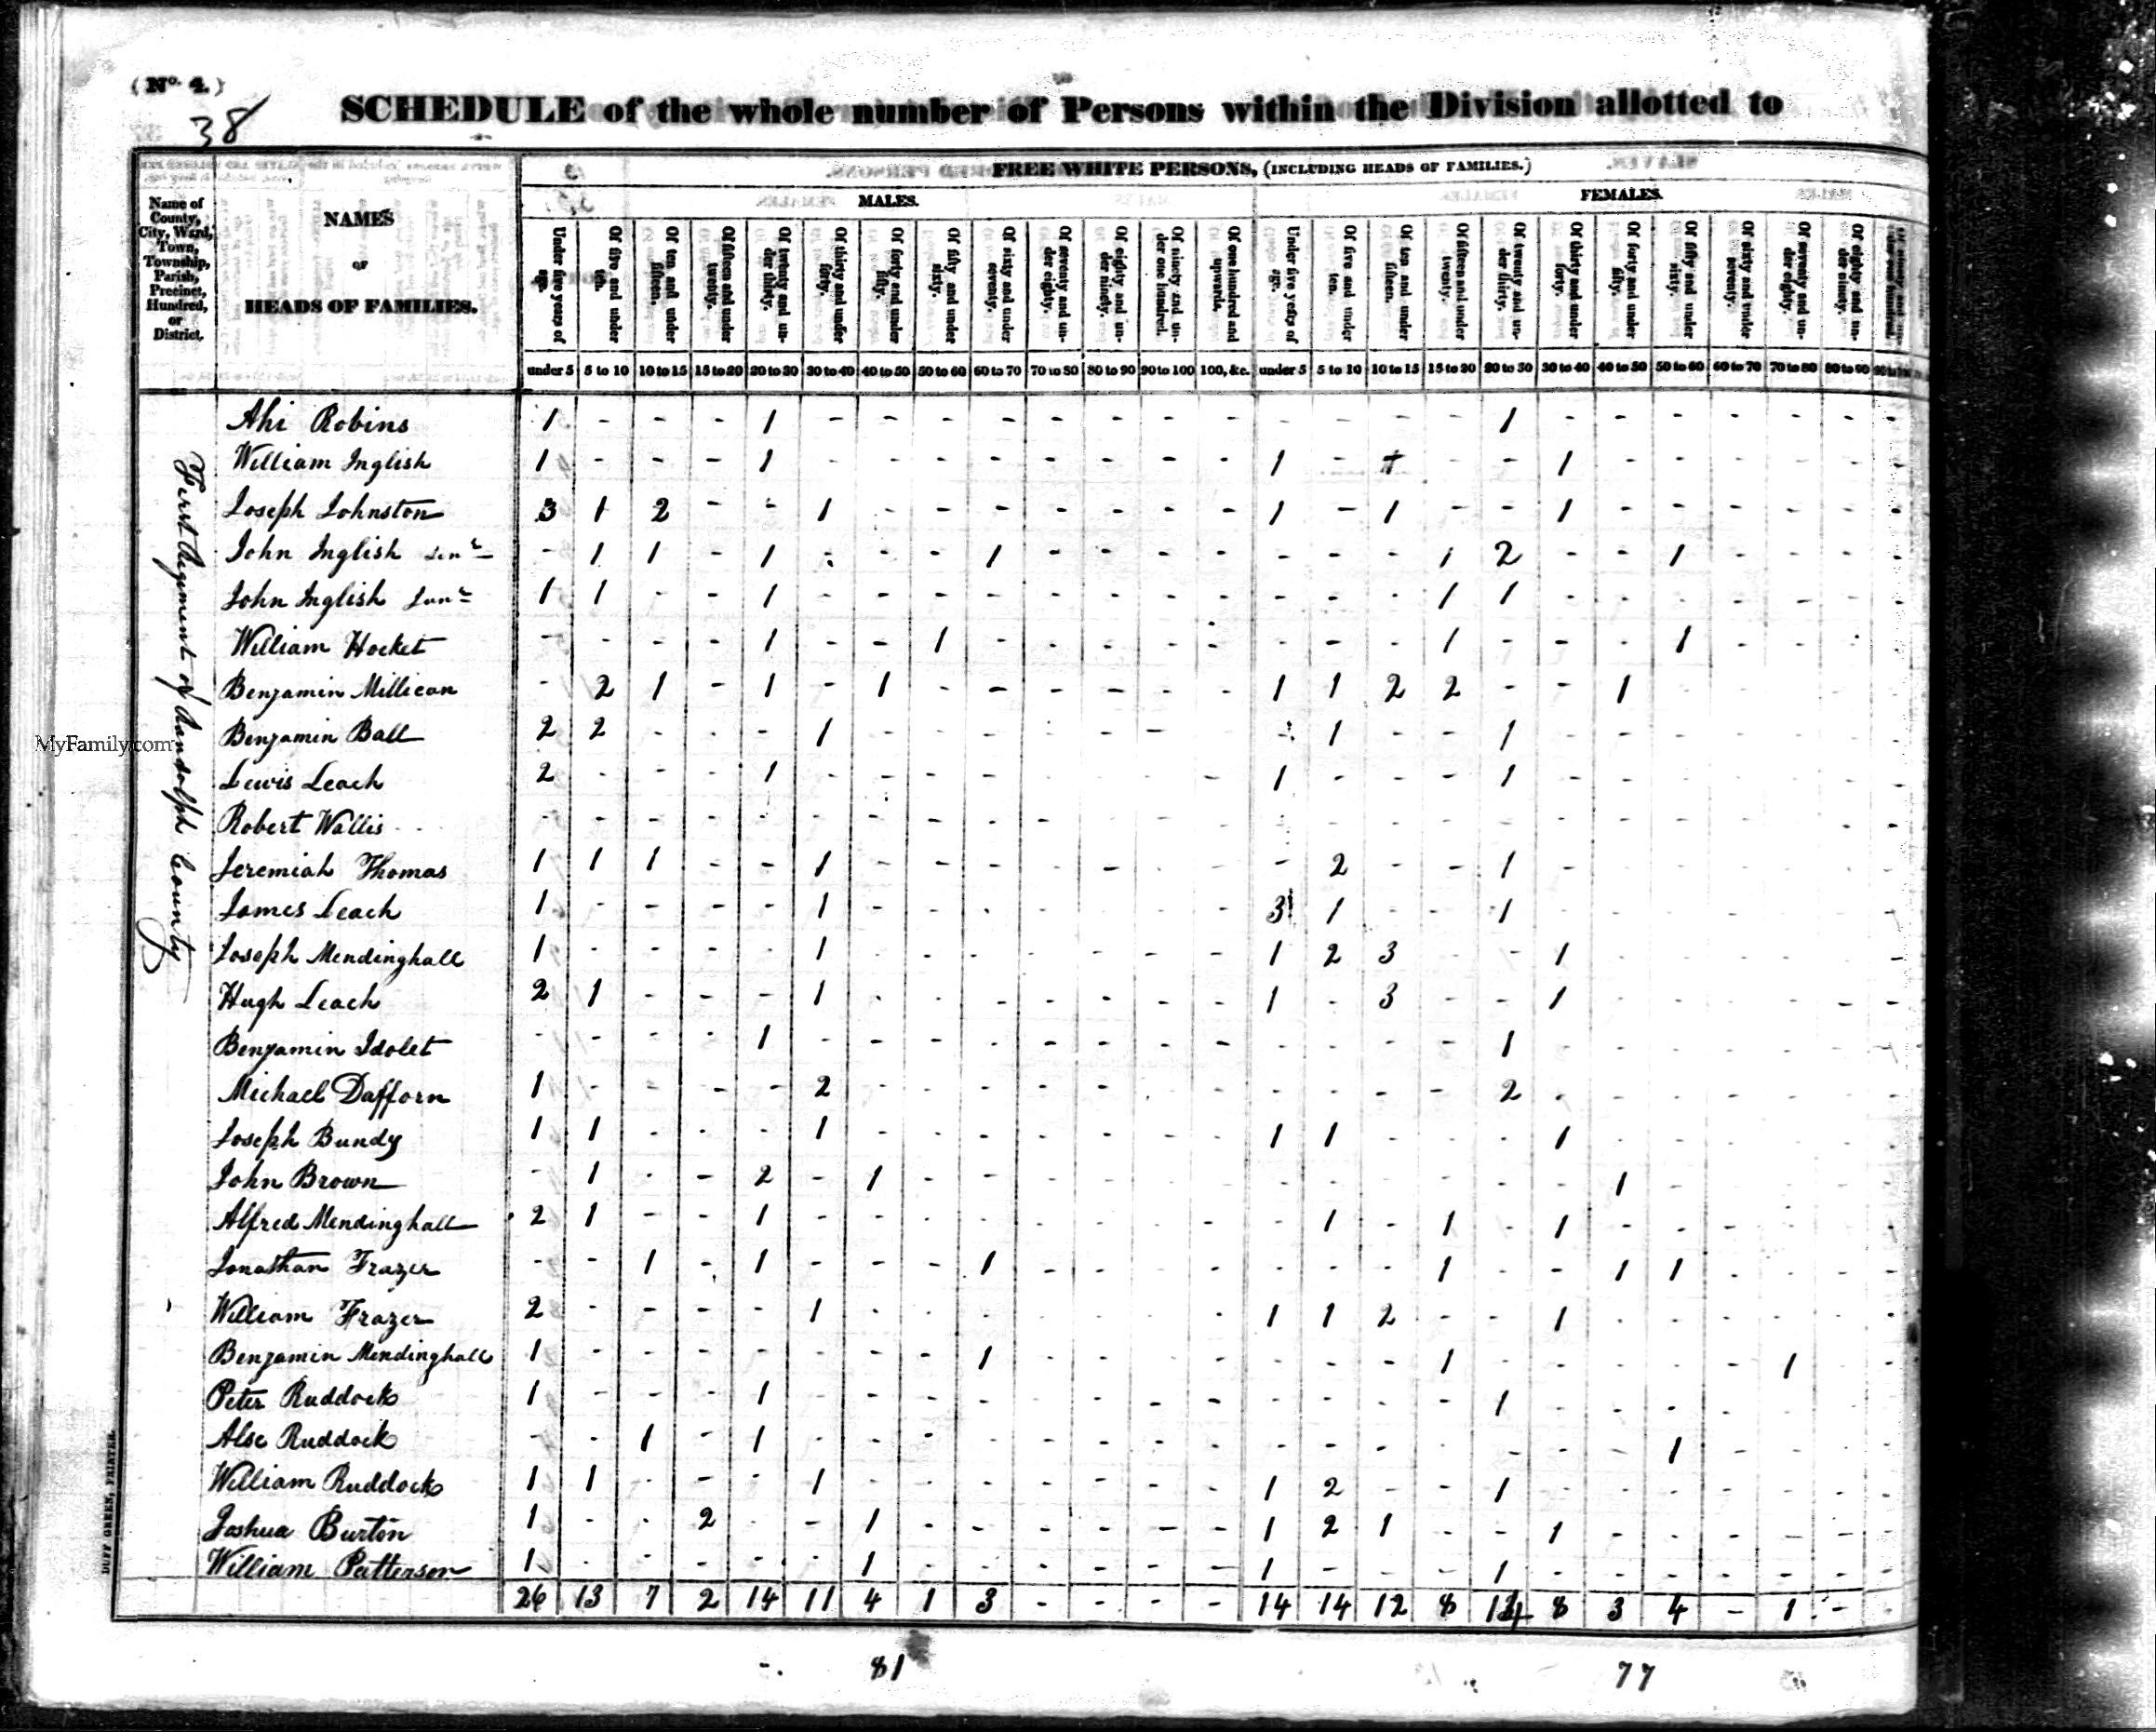 (No. 4.)
38
SCHEDULE of the whole number of Persons within the Division allotted to
FREE WHITE PERSONS, (INCLUDING HEADS OF FAMILIES.)
MALES. FEMALES.
Name of County, City, Ward, Town, Township, Parish, Precinct, Hundred, or District.
NAMES
OF
HEADS OF FAMILIES.
Under five years of age. Of five and under ten. Of ten and under fifteen. Of fifteen and under twenty. Of twenty and under thirty. Of thirty and under forty. Of forty and under fifty. Of fifty and under sixty. Of sixty and under seventy. Of seventy and under eighty. Of eighty and under ninety. Of ninety and under one hundred. Of one hundred and upwards. Under five years of age. Of five and under ten. Of ten and under fifteen. Of fifteen and under twenty. Of twenty and under thirty. Of thirty and under forty. Of forty and under fifty. Of fifty and under sixty. Of sixty and under seventy. Of seventy and under eighty. Of eighty and under ninety.
under 5 5 to 10 10 to 15 15 to 20 20 to 30 30 to 40 40 to 50 50 to 60 60 to 70 70 to 80 80 to 90 90 to 100 100, &c. under 5 5 to 10 10 to 15 15 to 20 20 to 30 30 to 40 40 to 50 50 to 60 60 to 70 70 to 80 80 to 90
First Regiment of Randolph County
Ahi Robins 1 - - - 1 - - - - - - - - - - - - 1 - - - - - - -
William Inglish 1 - - - 1 - - - - - - - - 1 - + - - 1 - - - - - -
Joseph Johnston 3 1 2 - - 1 - - - - - - - 1 - 1 - - 1 - - - - - -
John Inglish Senr - 1 1 - 1 - - - 1 - - - - - - - 1 2 - - 1 - - - -
John Inglish Junr 1 1 - - 1 - - - - - - - - - - - 1 1 - - - - - - -
William Hocket - - - - 1 - - 1 - - - - - - - - 1 - - - 1 - - - -
Benjamin Millican - 2 1 - 1 - 1 - - - - - - 1 1 2 2 - - 1 - - - - -
Benjamin Ball 2 2 - - - 1 - - - - - - - - 1 - - 1 - - - - - - -
Lewis Leach 2 - - - 1 - - - - - - - - 1 - - - 1 - - - - - - -
Robert Wallis - - - - - - - - - - - - - - - - - - - - - - - - -
Jeremiah Thomas 1 1 1 - - 1 - - - - - - - - 2 - - 1 - - - - - - -
James Leach 1 - - - - 1 - - - - - - - 3 1 - - 1 - - - - - - -
Joseph Mendinghall 1 - - - - 1 - - - - - - - 1 2 3 - - 1 - - - - - -
Hugh Leach 2 1 - - - 1 - - - - - - - 1 - 3 - - 1 - - - - - -
Benjamin Idolet - - - - 1 - - - - - - - - - - - - 1 - - - - - - -
Michael Dafforn 1 - - - - 2 - - - - - - - - - - - 2 - - - - - - -
Joseph Bundy 1 1 - - - 1 - - - - - - - 1 1 - - - 1 - - - - - -
John Brown - 1 - - 2 - 1 - - - - - - - - - - - - 1 - - - - -
Alfred Mendinghall 2 1 - - 1 - - - - - - - - - 1 - 1 - 1 - - - - - -
Jonathan Frazer - - 1 - 1 - - - 1 - - - - - - - 1 - - 1 1 - - - -
William Frazer 2 - - - - 1 - - - - - - - 1 1 2 - - 1 - - - - - -
Benjamin Mendinghall 1 - - - - - - - 1 - - - - - - - 1 - - - - - 1 - -
Peter Ruddock 1 - - - 1 - - - - - - - - - - - - 1 - - - - - - -
Alse Ruddock - - 1 - 1 - - - - - - - - - - - - - - - 1 - - - -
William Ruddock 1 1 - - - 1 - - - - - - - 1 2 - - 1 - - - - - - -
Joshua Burton 1 - - 2 - - 1 - - - - - - 1 2 1 - - 1 - - - - - -
William Patterson 1 - - - - - 1 - - - - - - 1 - - - 1 - - - - - - -
26 13 7 2 14 11 4 1 3 - - - - 14 14 12 8 14 8 3 4 - 1 - -
81 77
DUFF GREEN, PRINTER.
MyFamily.com